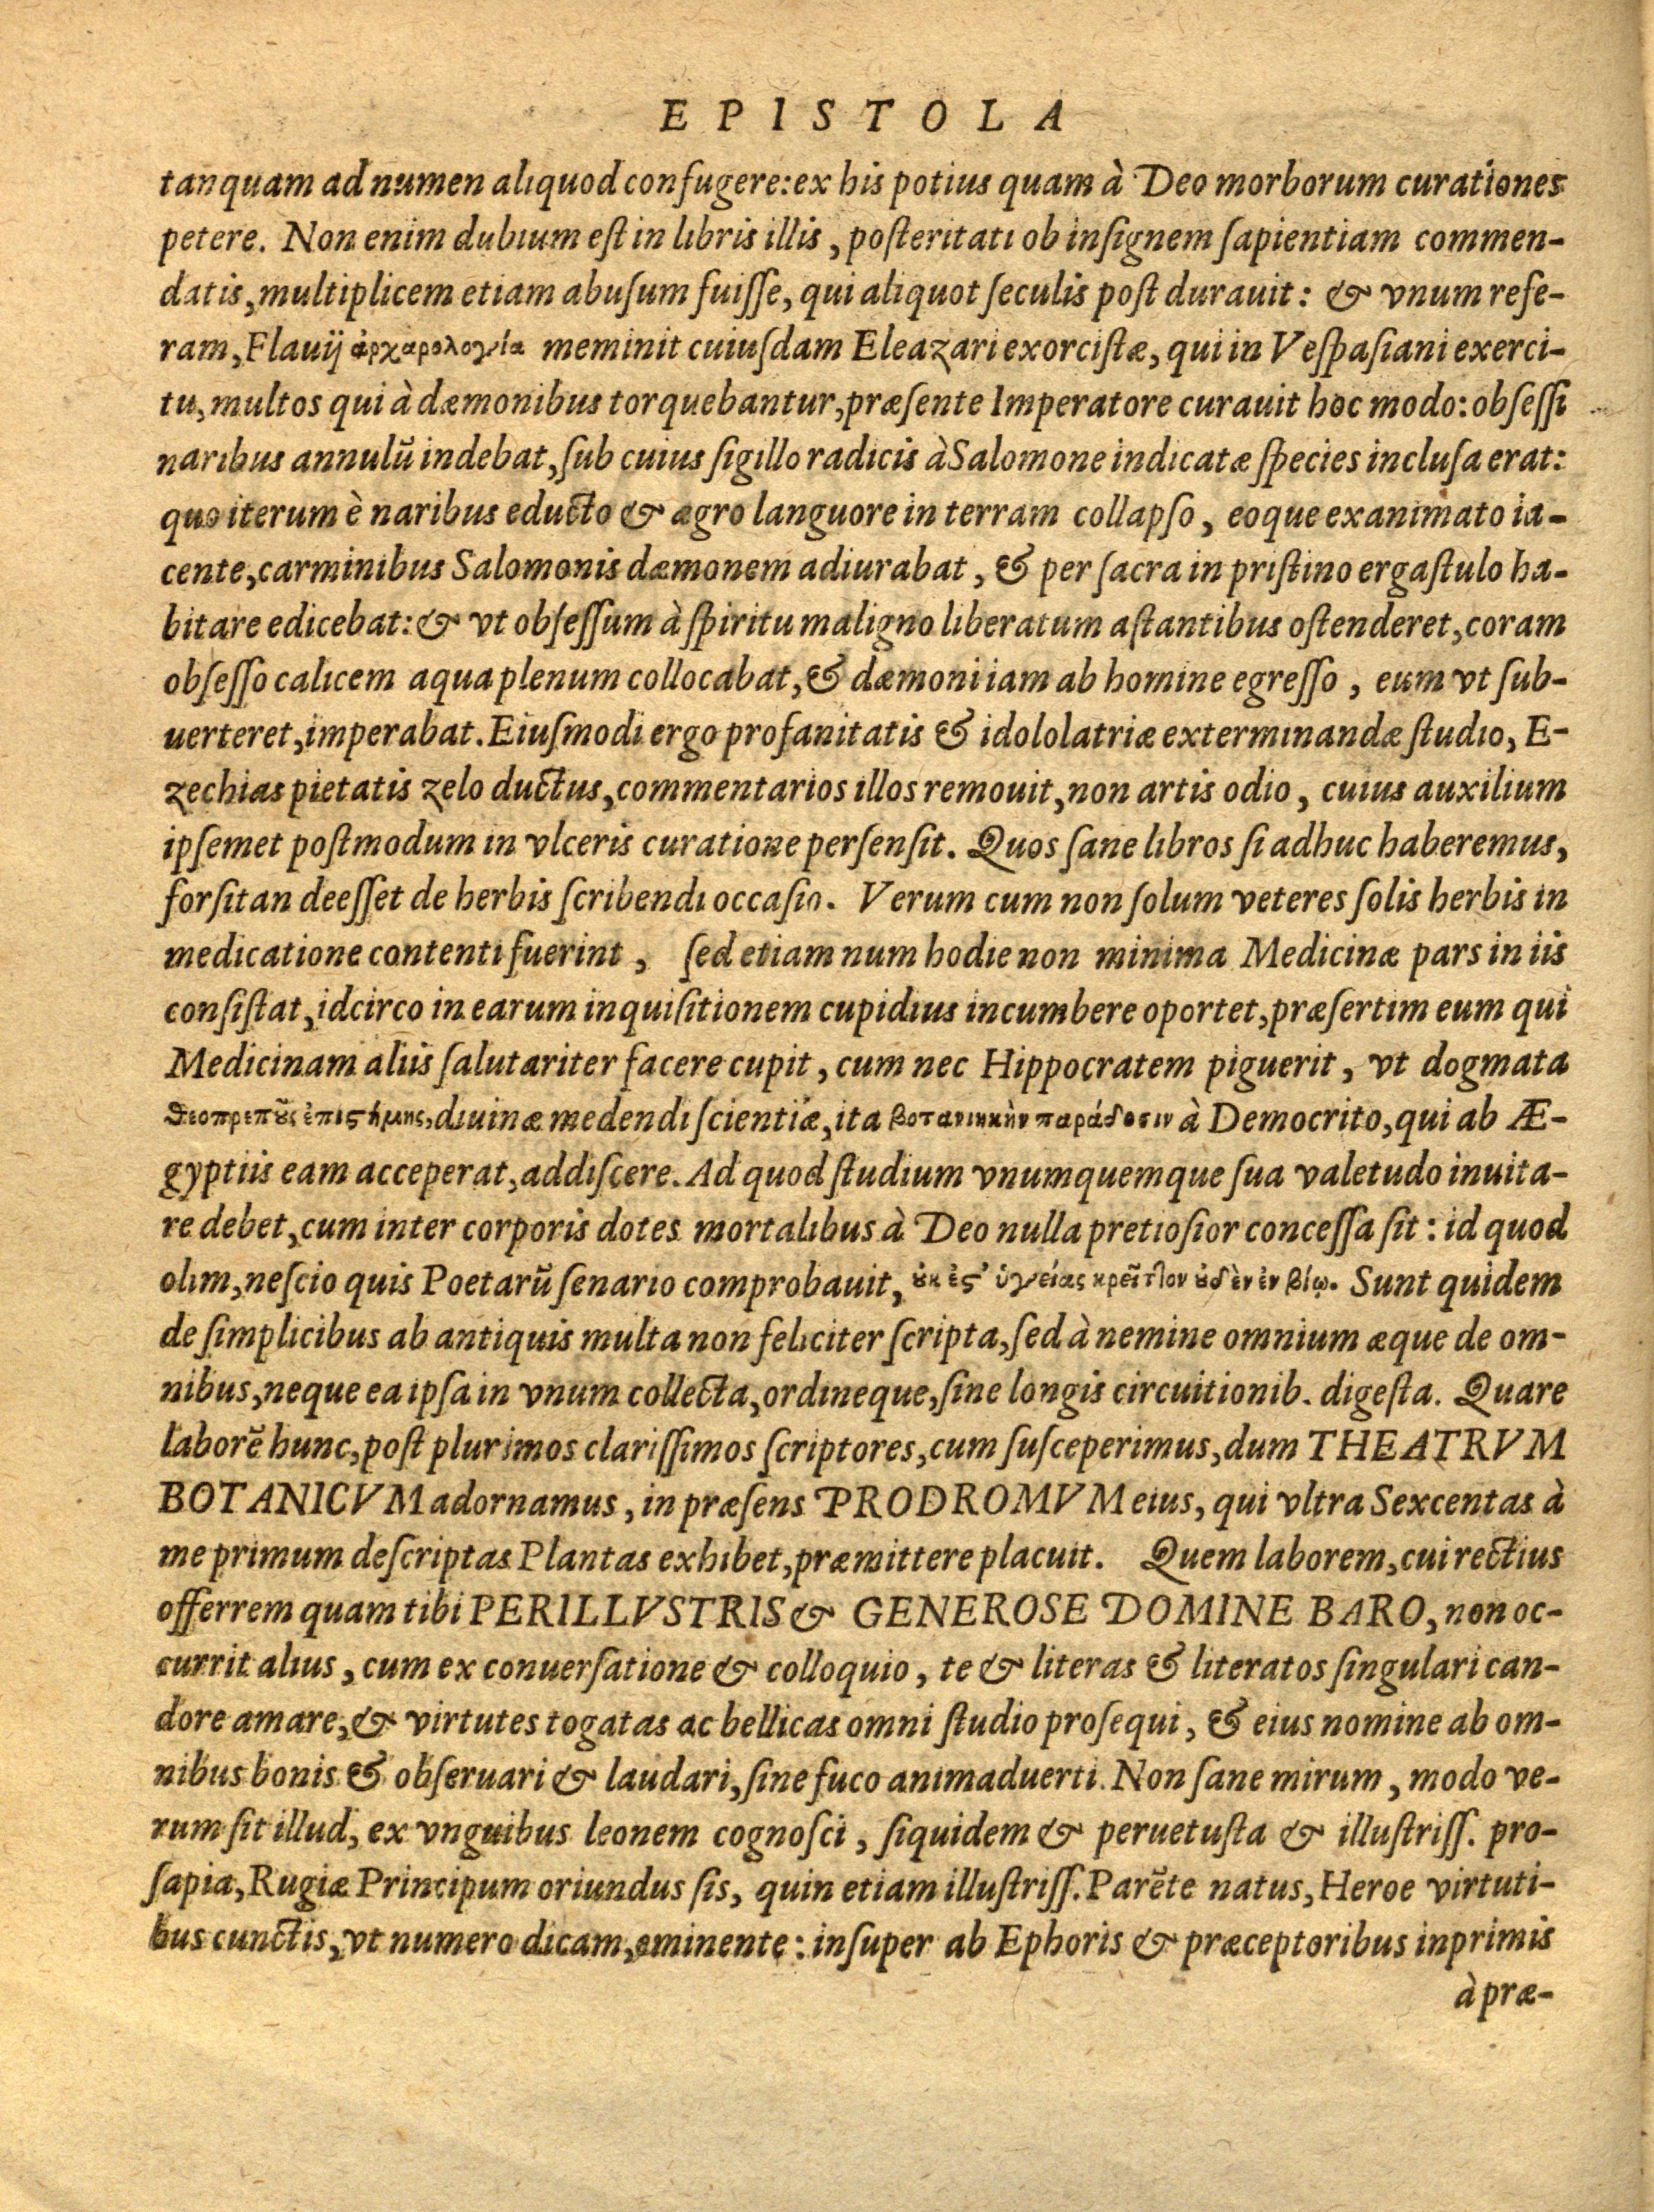 EPISTOLA
tanquam ad numen aliquod confugere: ex his potius quam à Deo morborum curationes
petere. Non enim dubium eſt in libris illis, poſteritati ob inſignem ſapientiam commen-
datis, multiplicem etiam abuſum fuiſſe, qui aliquot ſeculis poſt durauit: & vnum refe-
ram, Flauij ἀρχαρολογία meminit cuiuſdam Eleazari exorciſtæ, qui in Veſpaſiani exerci-
tu, multos qui à dæmonibus torquebantur, præſente Imperatore curauit hoc modo: obſeſſi
naribus annulũ indebat, ſub cuius ſigillo radicis à Salomone indicatæ ſpecies incluſa erat:
quo iterum è naribus educto & ægro languore in terram collapſo, eoque exanimato ia-
cente, carminibus Salomonis dæmonem adiurabat, & per ſacra in priſtino ergaſtulo ha-
bitare edicebat: & vt obſeſſum à ſpiritu maligno liberatum aſtantibus oſtenderet, coram
obſeſſo calicem aqua plenum collocabat, & dæmoni iam ab homine egreſſo, eum vt ſub-
uerteret, imperabat. Eiuſmodi ergo profanitatis & idololatriæ exterminandæ ſtudio, E-
zechias pietatis zelo ductus, commentarios illos remouit, non artis odio, cuius auxilium
ipſemet poſtmodum in vlceris curatione perſenſit. Quos ſane libros ſi adhuc haberemus,
forſitan deeſſet de herbis ſcribendi occaſio. Verum cum non ſolum veteres ſolis herbis in
medicatione contenti fuerint, ſed etiam num hodie non minima Medicinæ pars in iis
conſiſtat, idcirco in earum inquiſitionem cupidius incumbere oportet, præſertim eum qui
Medicinam aliis ſalutariter facere cupit, cum nec Hippocratem piguerit, vt dogmata
θεοπρεποῦς ἐπιστήμης, diuinæ medendi ſcientiæ, ita βοτανικὴν παράδοσιν à Democrito, qui ab Æ-
gyptiis eam acceperat, addiſcere. Ad quod ſtudium vnumquemque ſua valetudo inuita-
re debet, cum inter corporis dotes mortalibus à Deo nulla pretioſior conceſſa ſit: id quod
olim, neſcio quis Poetarũ ſenario comprobauit, οὐκ ἔστ’ ὑγείας κρεῖττον οὐδὲν ἐν βίῳ. Sunt quidem
de ſimplicibus ab antiquis multa non feliciter ſcripta, ſed à nemine omnium æque de om-
nibus, neque ea ipſa in vnum collecta, ordineque, ſine longis circuitionib. digeſta. Quare
laborẽ hunc, poſt plurimos clariſſimos ſcriptores, cum ſuſceperimus, dum THEATRVM
BOTANICVM adornamus, in præſens PRODROMVM eius, qui vltra Sexcentas à
me primum deſcriptas Plantas exhibet, præmittere placuit. Quem laborem, cui rectius
offerrem quam tibi PERILLVSTRIS & GENEROSE DOMINE BARO, non oc-
currit alius, cum ex conuerſatione & colloquio, te & literas & literatos ſingulari can-
dore amare, & virtutes togatas ac bellicas omni ſtudio proſequi, & eius nomine ab om-
nibus bonis & obſeruari & laudari, ſine fuco animaduerti. Non ſane mirum, modo ve-
rum ſit illud, ex vnguibus leonem cognoſci, ſiquidem & peruetuſta & illuſtriſſ. pro-
ſapia, Rugiæ Principum oriundus ſis, quin etiam illuſtriſſ. Parẽte natus, Heroe virtuti-
bus cunctis, vt numero dicam, eminente: inſuper ab Ephoris & præceptoribus inprimis
à præ-